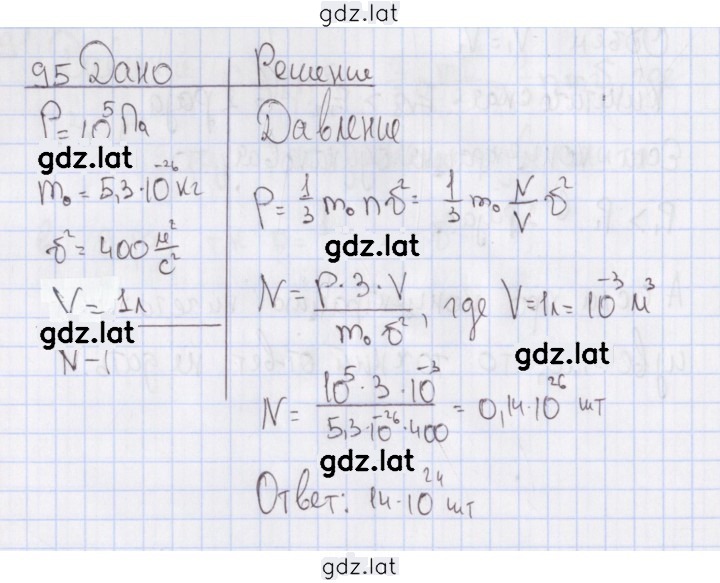 gdz.lat
95 Дано
P = 10⁵ Па
gdz.lat
m₀ = 5,3·10⁻²⁶ кг
υ² = 400 м²/с²
V = 1л
gdz.lat
N – 1
Решение
Давление
P = 1/3 m₀ n υ² = 1/3 m₀ N/V υ²
gdz.lat
N = P·3·V / m₀ υ², где V = 1л = 10⁻³ м³
gdz.lat
N = 10⁵·3·10⁻³ / 5,3·10⁻²⁶·400 = 0,14·10²⁶ шт
gdz.lat
Ответ: 14·10²⁴ шт
gdz.lat